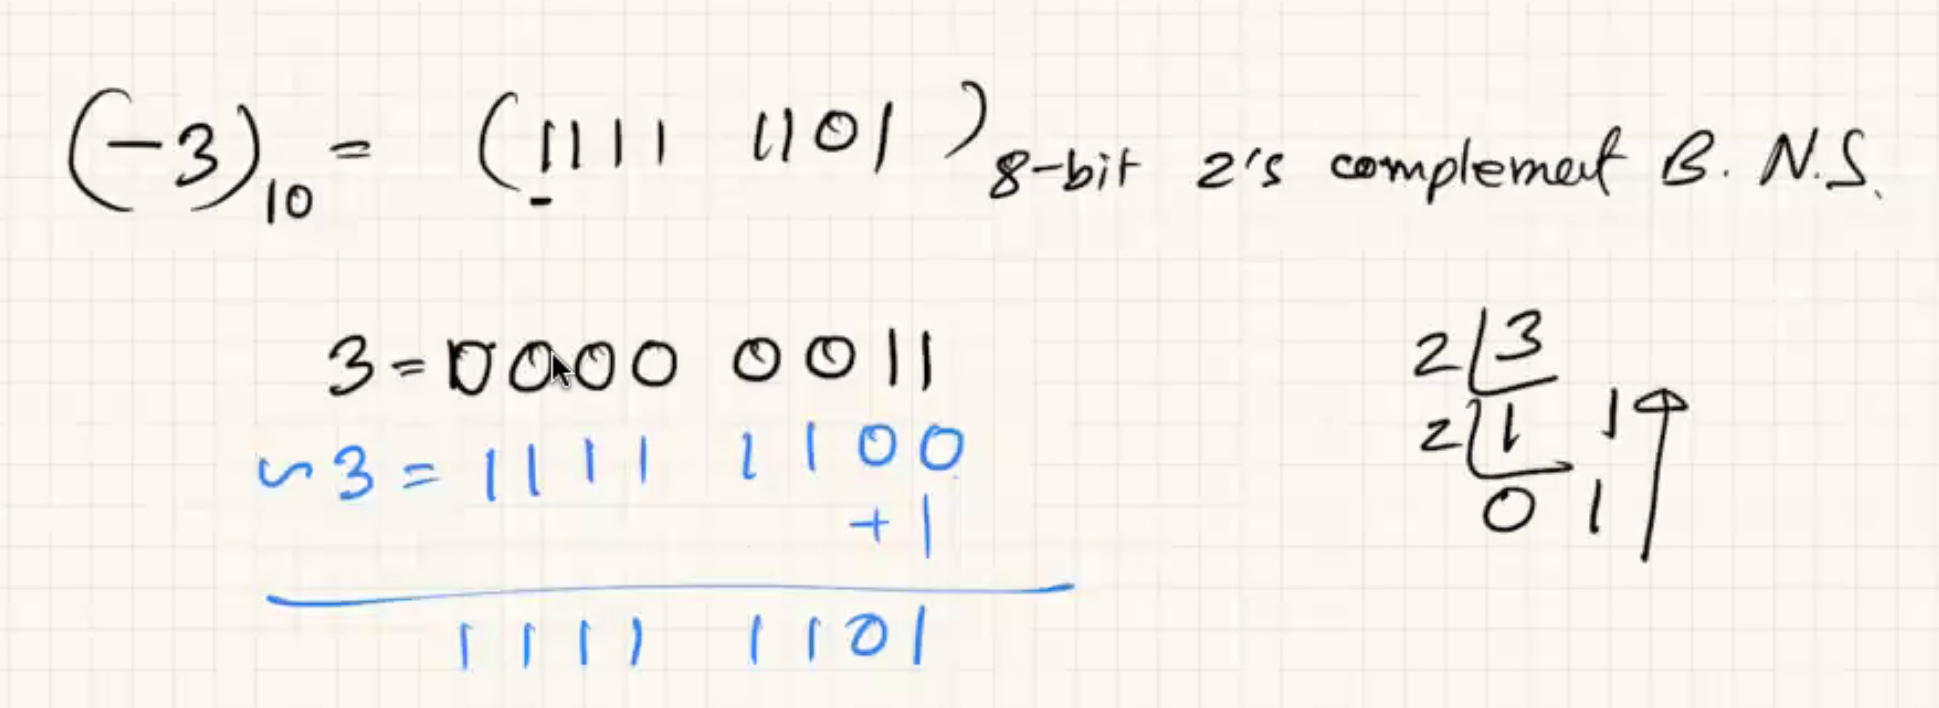 (-3)10 = (1111 1101)8-bit 2's complement B.N.S.
3 = 0000 0011
~3 = 1111 1100
+1
1111 1101
2 3
2 1 1
0 1